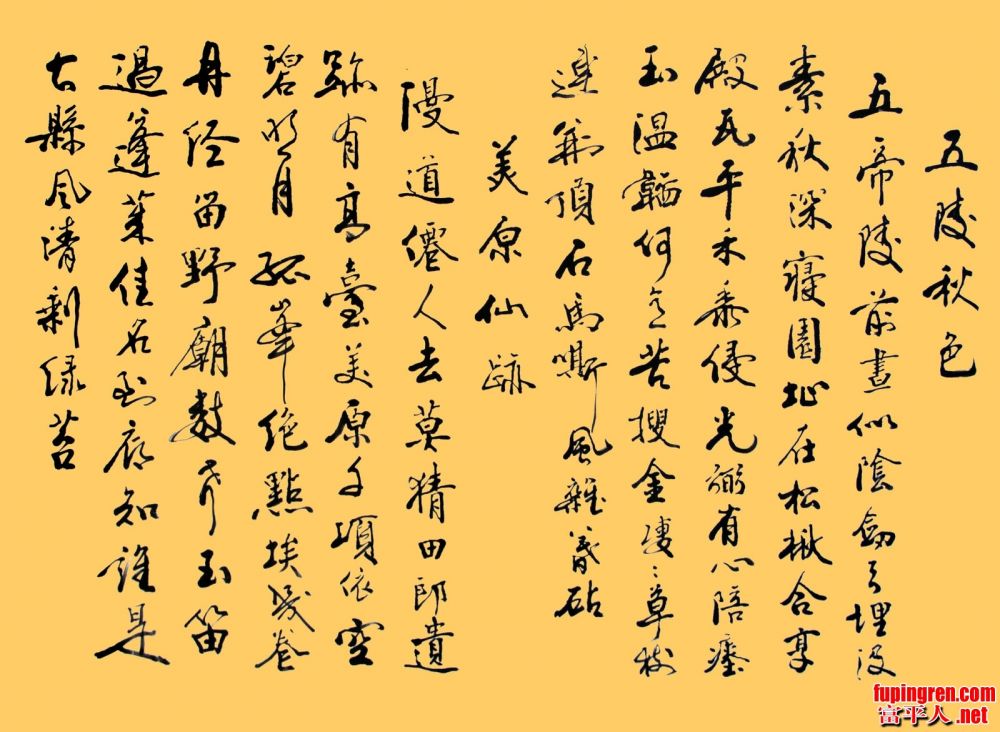 五陵秋色
五帝陵前晝似陰劍弓埋没
素秋深寢園址在松楸合享
殿瓦平禾黍侵光弼有心陪瘞
玉溫韜何意苦搜金凄〻草樹
連荆頂石馬嘶風雜暮砧
美原仙跡
漫道僊人去莫猜田郎遺
跡有高臺美原千頃依空
碧明月孤峯絶點埃幾卷
丹经留野廟數聲玉笛
過蓬萊佳名到處知誰是
古縣風清剩绿苔
fupingren.com
富平人.net